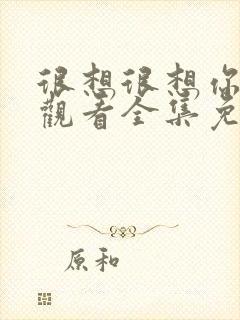 很想很想你
觀看全集免
原和